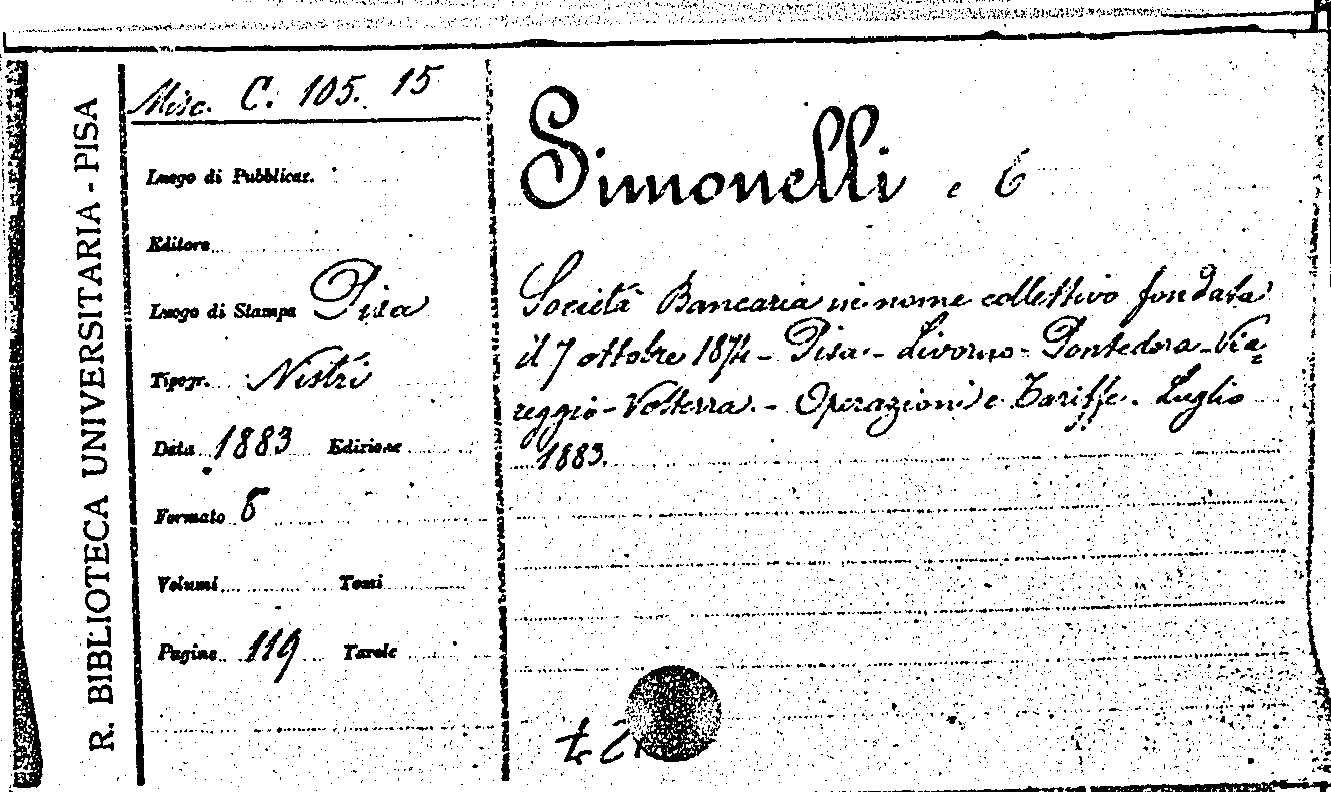 R. BIBLIOTECA UNIVERSITARIA - PISA
Misc. C. 105. 15
Luogo di Pubblicaz.
Editore
Luogo di Stampa Pisa
Tipogr. Nistri
Data 1883 Edizione
Formato 8
Volumi Tomi
Pagine 119 Tavole
Simonelli e C
Società Bancaria in nome collettivo fondata
il 7 ottobre 1874 - Pisa - Livorno - Pontedera - Via=
reggio - Volterra. - Operazioni e Tariffe. Luglio
1883.